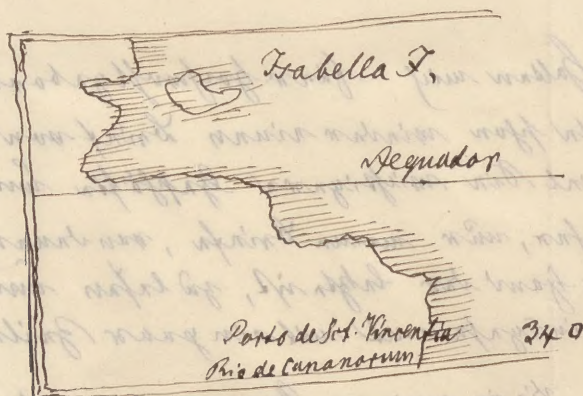 Isabella I.
Aequador
Porto de Sct. Vincentia
34°
Rio de Cananorum